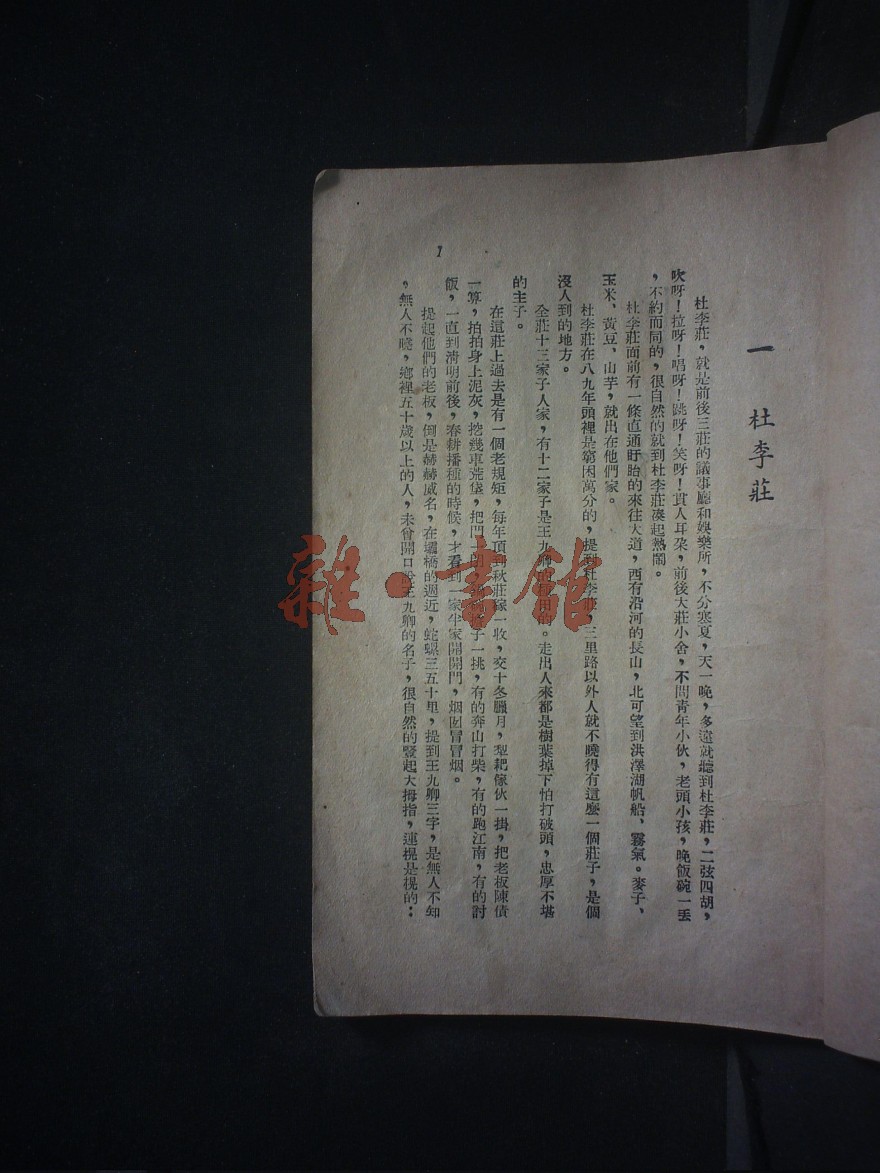 一 杜李莊
杜李莊，就是前後三莊的議事廳和娛樂所，不分寒夏，天一晚，多遠就聽到杜李莊，二弦四胡，
吹呀！拉呀！唱呀！跳呀！笑呀！貫人耳朶，前後大莊小舍，不問青年小伙，老頭小孩，晚飯碗一丢
，不約而同的，很自然的就到杜李莊湊起熱鬧。
杜李莊面前有一條直通盱眙的來往大道，西有沿河的長山，北可望到洪澤湖帆船、霧氣。麥子、
玉米、黃豆、山芋，就出在他們家。
杜李莊在八九年頭裡是窮困萬分的，提到杜李莊，三里路以外人就不曉得有這麼一個莊子，是個
沒人到的地方。
全莊十三家子人家，有十二家子是王九卿的種田的。走出人來都是樹葉掉下怕打破頭，忠厚不塔
的主子。
在這莊上過去是有一個老規矩，每年頂到秋莊稼一收，交十冬臘月，犁耙傢伙一掛，把老板陳債
一算，拍拍身上泥灰，挖幾車荒垡，把門一子一挑，有的奔山打柴，有的跑江南，有的討
飯，一直到清明前後，春耕播種的時候，才看到一家半家開開門，烟囱冒冒烟。
提起他們的老板，倒是赫赫威名，在壩橋的週近，蛇螺三五十里，提到王九卿三字，是無人不知
，無人不曉，鄉裡五十歲以上的人，未曾開口說王九卿的名子，很自然的豎起大拇指，連棍是棍的：
1
雜·書館